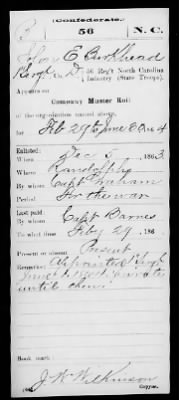 (Confederate.)
3
56 N. C.
John E. Burkhead
Sergt., Co. D, 56 Reg't North Carolina
Infantry (State Troops).
Appears on
Company Muster Roll
of the organization named above,
for Feb 29 to June 30, 1864
Enlisted:
When Dec 5, 1863.
Where Randolph
By whom Capt
Period for the war
Last paid:
By whom Capt Barnes
To what time Feby 29, 186
Present or absent Present
Remarks: Appointed Sergt
June 1 1864
until then
Book mark:
J. W. Wilkinson
Copyist.